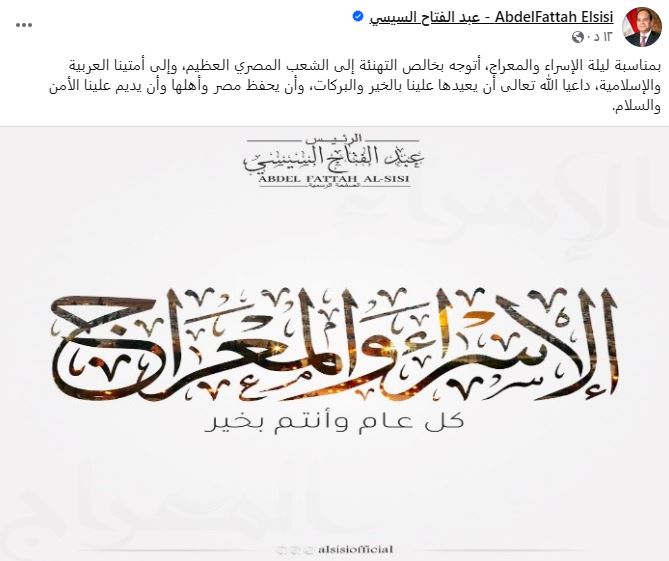 AbdelFattah Elsisi - عبد الفتاح السيسي
١٢ د ·
بمناسبة ليلة الإسراء والمعراج، أتوجه بخالص التهنئة إلى الشعب المصري العظيم، وإلى أمتينا العربية
والإسلامية، داعيا الله تعالى أن يعيدها علينا بالخير والبركات، وأن يحفظ مصر وأهلها وأن يديم علينا الأمن
والسلام.
الرئيس
عبد الفتاح السيسي
ABDEL FATTAH AL-SISI
الصفحة الرسمية
الإسراء
الإسراء والمعراج
كل عام وأنتم بخير
المعراج
alsisiofficial